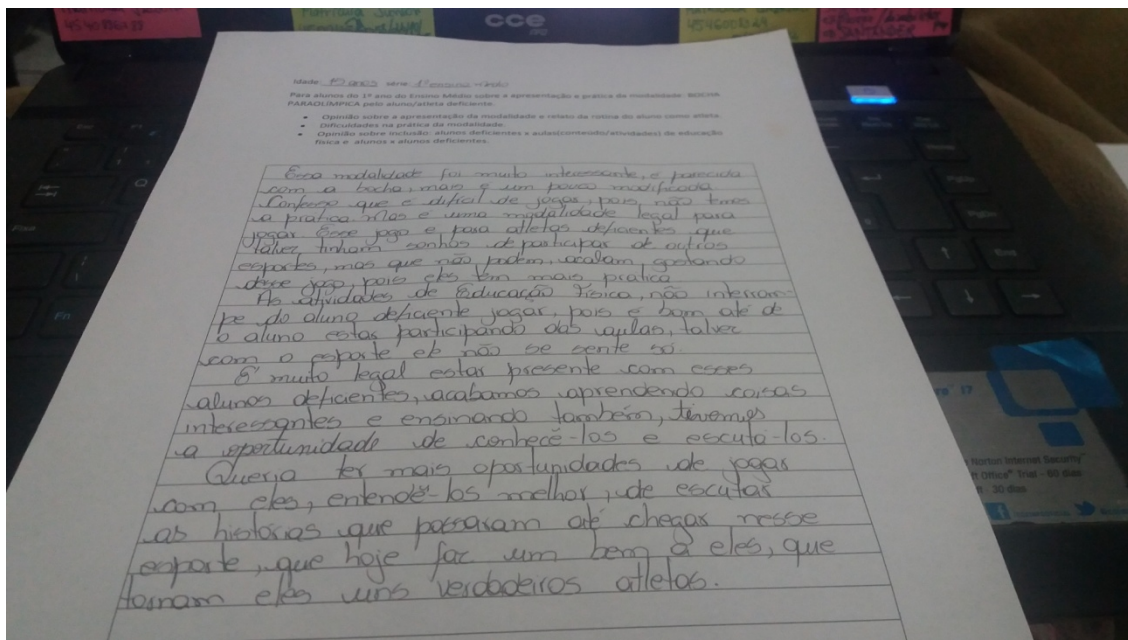 4540
cce
454600
SANTANDER
Idade: 15 anos série 1º ensino médio
Para alunos do 1º ano do Ensino Médio sobre a apresentação e prática da modalidade: BOCHA
PARAOLÍMPICA pelo aluno/atleta deficiente.
• Opinião sobre a apresentação da modalidade e relato da rotina do aluno como atleta.
• Dificuldades na prática da modalidade.
• Opinião sobre inclusão: alunos deficientes x aulas(conteúdo/atividades) de educação
física e alunos x alunos deficientes.
Essa modalidade foi muito interessante, e parecida
com a bocha, mais e um pouco modificada
Confesso que e dificil de jogar, pois não temos
a pratica mas e uma modalidade legal para
jogar Esse jogo e para atletas deficientes que
talvez tinham sonhos de participar de outros
esportes, mas que não podem, acabam, gostando
desse jogo, pois eles têm mais pratica
As atividades de Educação Física, não interrom-
pe do aluno deficiente jogar, pois e bom até de
o aluno estar participando das aulas, talvez
com o esporte ele não se sente só.
É muito legal estar presente com esses
alunos deficientes, acabamos aprendendo coisas
interessantes e ensinando também, tivemos
a oportunidade de conhecê-los e escutá-los.
Queria ter mais oportunidades de jogar
com eles, entendê-los melhor, de escutar
as histórias que passaram até chegar nesse
esporte, que hoje faz um bem a eles, que
tornam eles uns verdadeiros atletas.
Norton Internet Security
Office Trial - 60 dias
30 dias
PgUp
PgDn
End
Fn